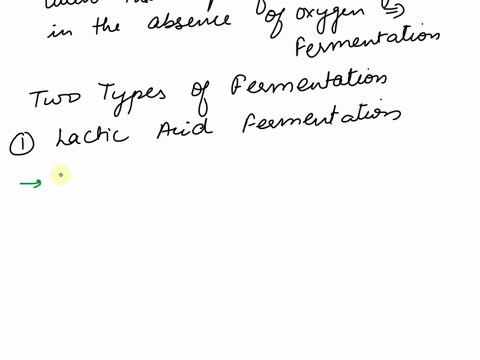 in the absence of oxygen ⇒
Fermentation
Two Types of Fermentation
① Lactic Acid Fermentation
→